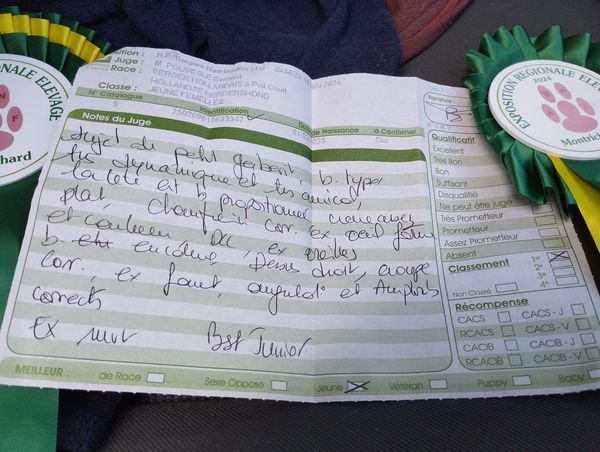 IONALE ELEVAGE
N
F
chard
Exposition : R.E. Bergers Néerlandais (41) - SAMEDI 11 MAI 2024
Juge : M. POUVESLE Bernard
Race : BERGER HOLLANDAIS à Poil Court
HOLLANDSE HERDERSHOND
Classe : JEUNE FEMELLES
N° Catalogue
Identification
de Naissance
à Confirmer
9
Oui
Notes du Juge
Sujet de petit gabarit, b. type,
très dynamique et très amical,
la tête est b proportionnée, crâne assez
plat, chanfrein cor. ex oeil forme
et couleur
ex oreilles
b.
encolure Dessus droit, croupe
cor. ex fouet, angulat° et Aplombs
corrects
Ex
Best Junior
MEILLEUR :
de Race
Sexe Opposé
Jeune
Vétéran
Puppy
Baby
Signature :
Qualificatif
Excellent
Très Bon
Bon
Suffisant
Disqualifié
Ne peut être jugé
Très Prometteur
Prometteur
Assez Prometteur
Absent
Classement
1er
2e
3e
4e
Non Classé
Récompense
CACS
CACS - J
RCACS
CACS - V
CACIB
CACIB - J
RCACIB
CACIB - V
EXPOSITION REGIONALE ELEVAGE
2024
Montrich